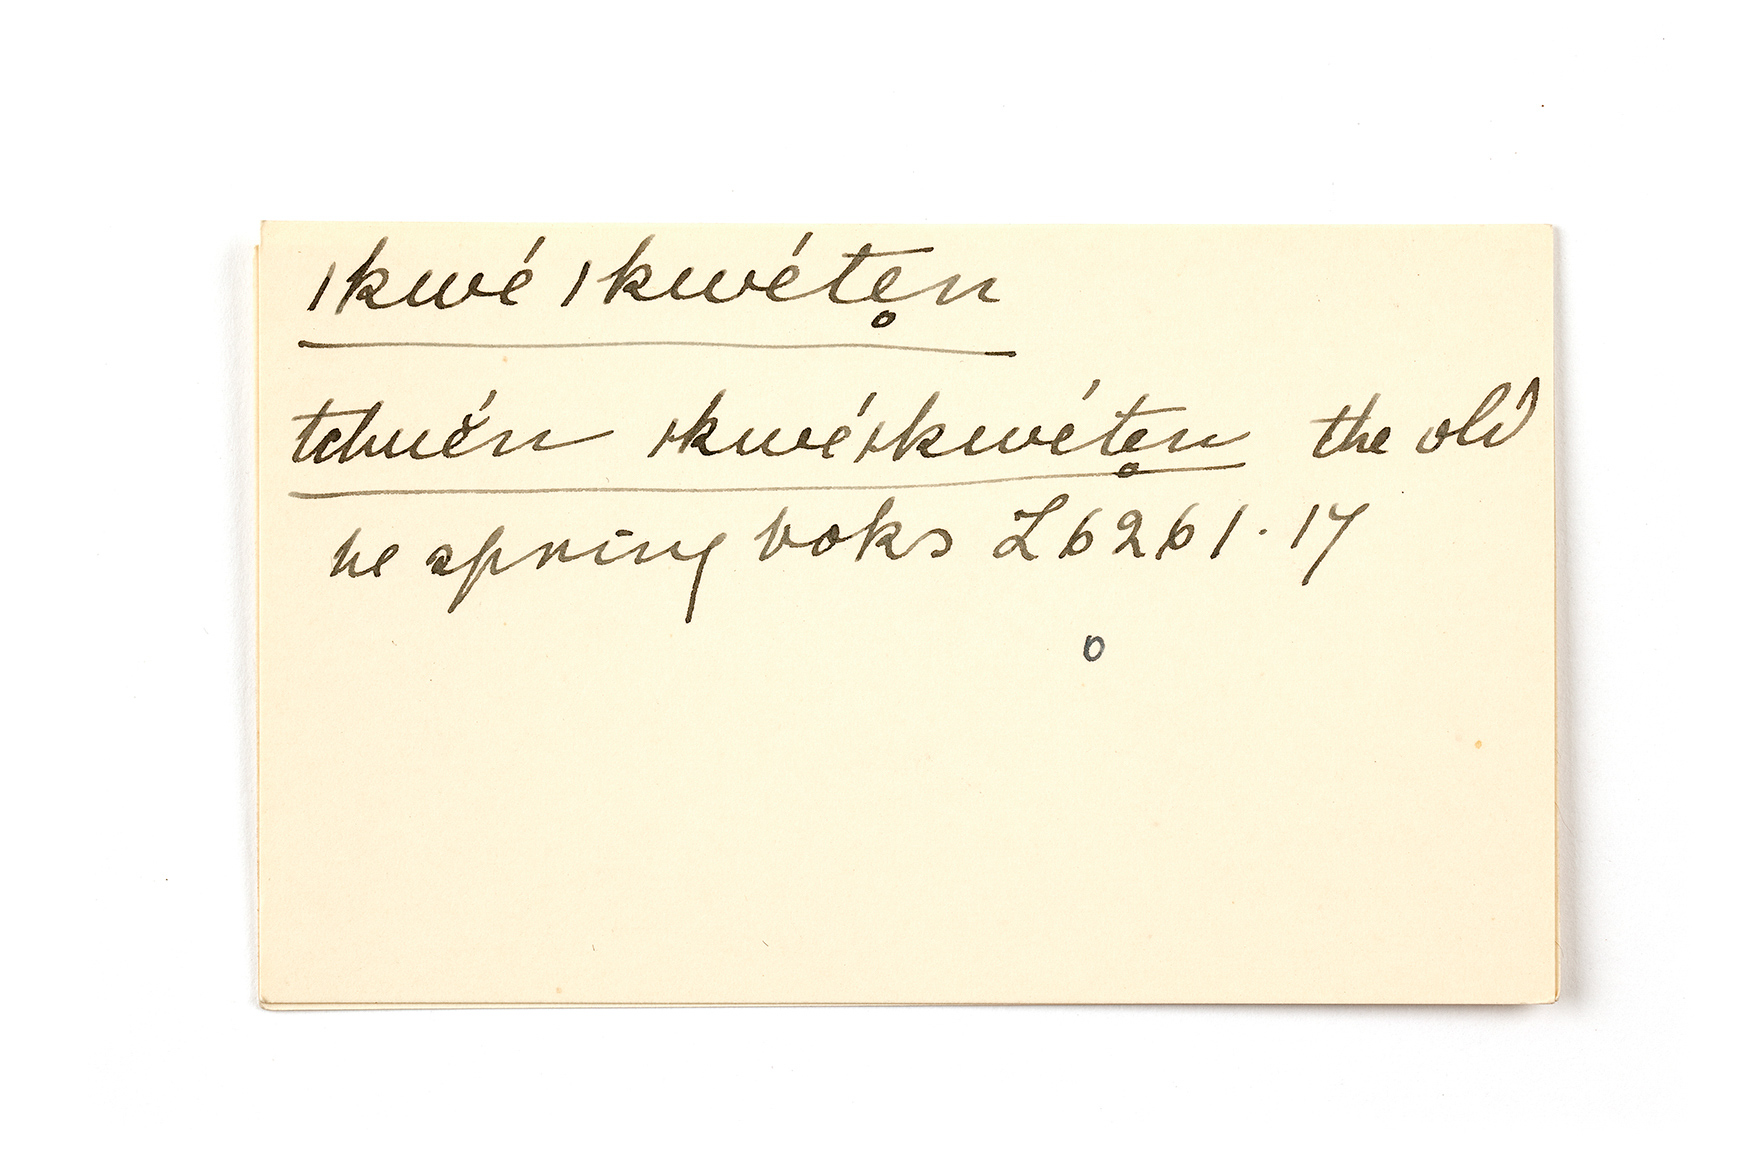 ǀkwé ǀkwéte̥n
tchuĕ́n ǀkwéǀkwéte̥n the old
he spring boks L6261.17
o